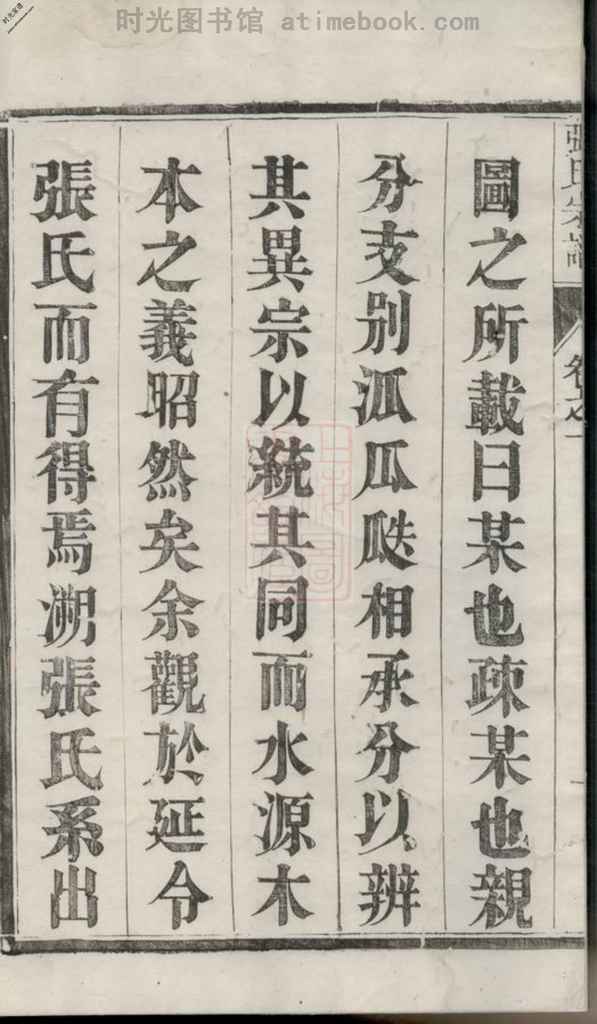 时光图书馆 atimebook.com
張氏宗譜
卷之一
圖之所載曰某也疎某也親
分支别泒瓜瓞相承分以辨
其異宗以統其同而水源木
本之義昭然矣余觀於延令
張氏而有得焉溯張氏系出